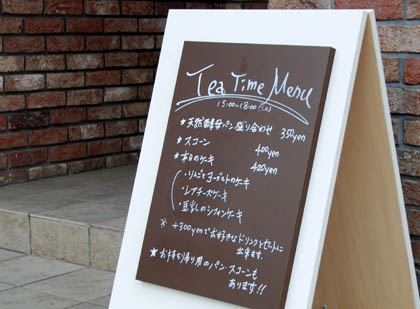 Tea Time Menu
15:00-18:00 (L.O)
★天然酵母パン盛り合わせ 350yen
★スコーン 400yen
★本日のケーキ 420yen
・りんごとヨーグルトのケーキ
・レアチーズケーキ
・豆乳のシフォンケーキ
※ +300yenでお好きなドリンクとセットに
出来ます。
★お持ち帰り用のパン・スコーンも
あります!!